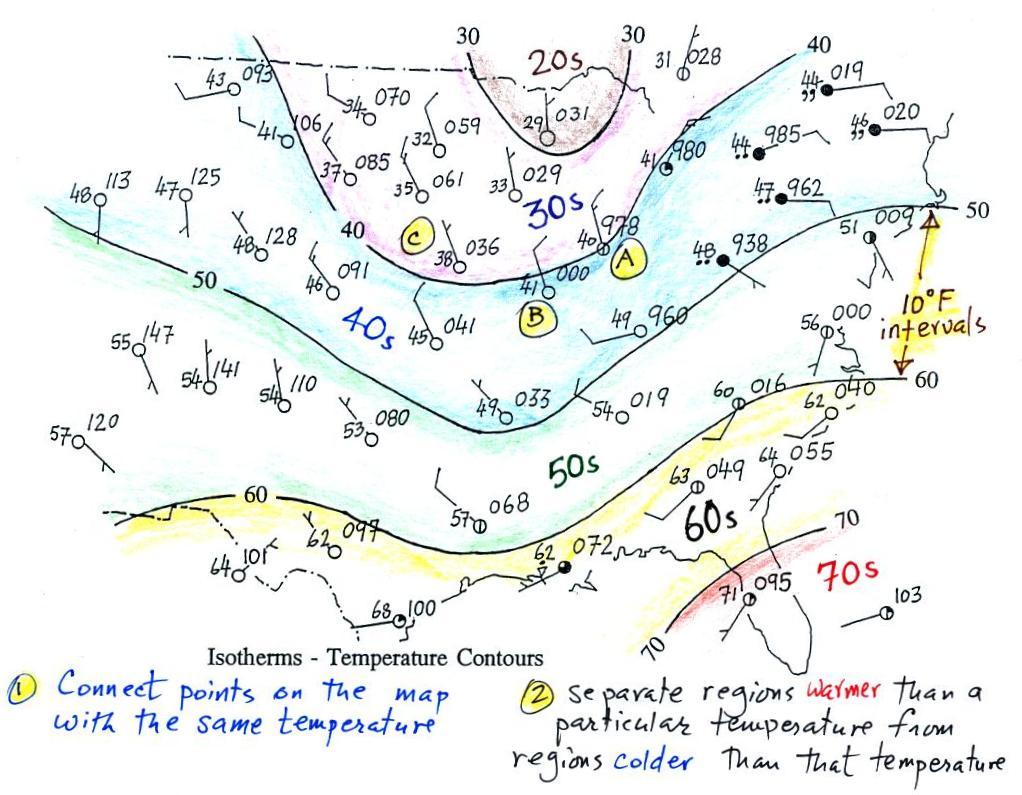 30
30
40
20s
31 028
43 093
34 070
29 031
44 019
,,
46 020
,,
41 106
32 059
44 985
..
37 085
35 061
33 029
41 980
48 113
47 125
30s
47 962
..
50
C
40
38 036
40 978
A
48 938
..
51 009
48 128
46 091
41 000
B
50
40s
45 041
49 960
56 000
10°F
intervals
55 147
54 141
54 110
49 033
54 019
60 016
62 040
60
57 120
53 080
50s
63 049
64 055
60
57 068
60s
70
62 097
62 072
64 101
70s
71 095
68 100
103
70
Isotherms - Temperature Contours
1 Connect points on the map
with the same temperature
2 separate regions warmer than a
particular temperature from
regions colder than that temperature